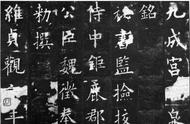 九成宮
銘
祕書監撿校
侍中鉅鹿郡
公臣魏徵奉
勑撰
維貞觀年